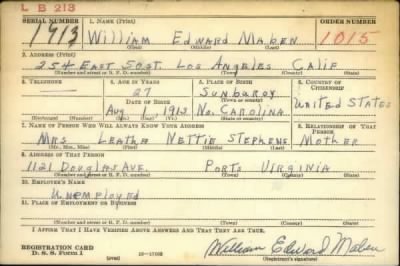 L B 213
SERIAL NUMBER 1. NAME (Print) ORDER NUMBER
1713 William Edward Maben 1015
(First) (Middle) (Last)
2. ADDRESS (Print)
254 East 50 St. Los Angeles Calif
(Number and street or R. F. D. number) (Town) (County) (State)
3. TELEPHONE 4. AGE IN YEARS 5. PLACE OF BIRTH 6. COUNTRY OF CITIZENSHIP
— 27 Sunburoy
DATE OF BIRTH (Town or county) United States
Aug 1 1913 No. Carolina
(Exchange) (No.) (Mo.) (Day) (Yr.) (State or country)
7. NAME OF PERSON WHO WILL ALWAYS KNOW YOUR ADDRESS 8. RELATIONSHIP OF THAT PERSON
Mrs. Leatha Nettie Stephens Mother
(Mr., Mrs., Miss) (First) (Middle) (Last)
9. ADDRESS OF THAT PERSON
1121 Douglas Ave. Ports Virginia
(Number and street or R. F. D. number) (Town) (County) (State)
10. EMPLOYER'S NAME
Unemployed
11. PLACE OF EMPLOYMENT OR BUSINESS
(Number and street or R. F. D. number) (Town) (County) (State)
I AFFIRM THAT I HAVE VERIFIED ABOVE ANSWERS AND THAT THEY ARE TRUE.
REGISTRATION CARD
D. S. S. Form 1 16-17105 William Edward Maben
(Registrant's signature)